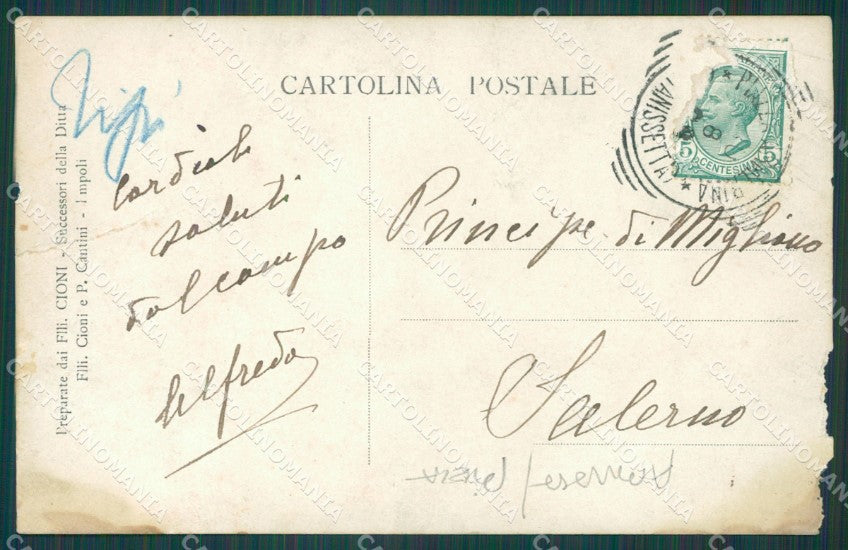 CARTOLINA POSTALE
Preparate dai Flli. CIONI - Successori della Ditta
Flli. Cioni e P. Cantini - Impoli
Cordiali
saluti
dal campo
Alfredo
Principe di Migliano
Salerno
5 CENTESIMI 5
TANISSETTA)
CARTOLINOMANIA